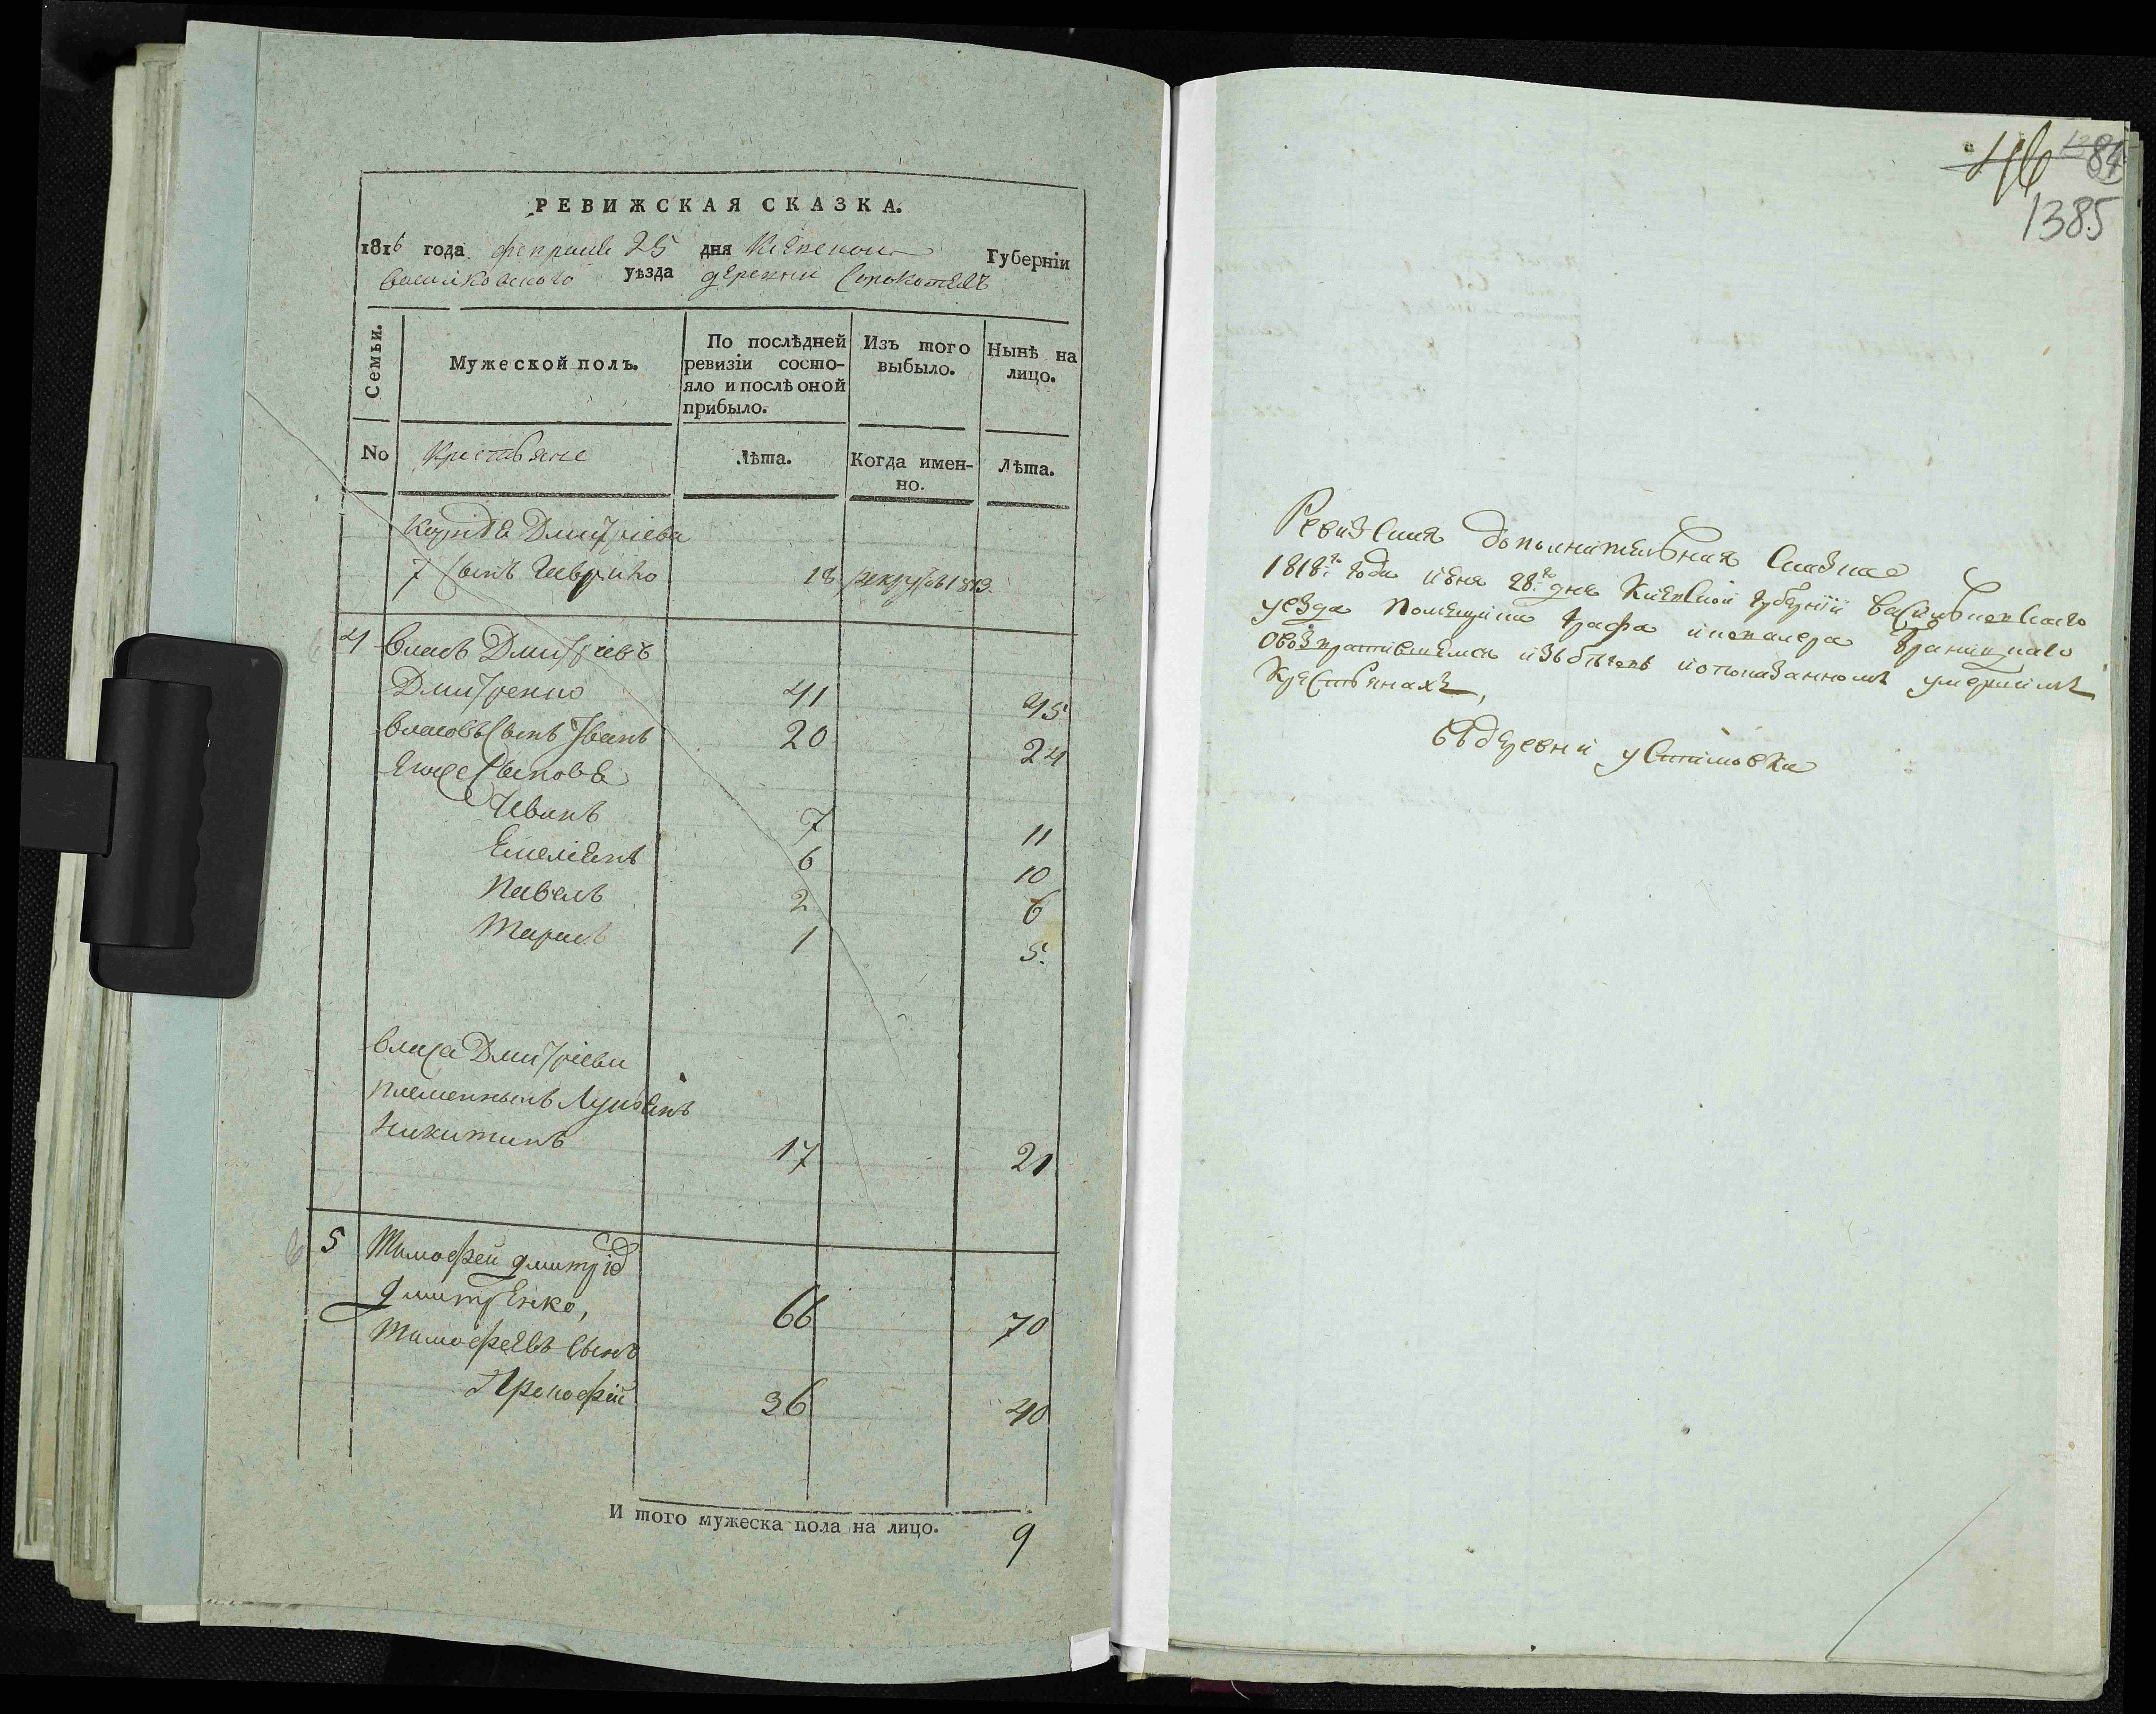 РЕВИЖСКАЯ СКАЗКА.
1816 года февраля 25 дня Киевской Губернiи
василковского уѣзда деревни Сорокотягъ
Семьи.
Мужеской полъ.
По послѣдней ревизiи состо-
яло и послѣ оной
прибыло.
Изъ того
выбыло.
Нынѣ на
лицо.
No Крестьяне Лѣта. Когда имен-
но. Лѣта.
Дмитрiева
7 Сынъ Гаврило 18 рекрутъ 1813.
4 Власъ Дмитрiевъ
Дмитренко 41 45
Власовъ Сынъ Iванъ 20 24
Еще Сыновъя
Иванъ 7 11
Емелiянъ 6 10
Павелъ 2 6
Тарасъ 1 5.
Власа Дмитрiева
племенникъ Лукьянъ
Никитинъ 17 21
5 Тимофей дмитрiев
дмитренко, 66 70
Тимофеевъ Сынъ
Прокофiй 36 40
И того мужеска пола на лицо. 9
46 84
1385
Ревизская дополнительная Сказка
1818го года июня 28го дня Киевской губернiи василковскаго
уезда помещика графа икавалера браницкаго
овозвратившемся избѣговъ ипоказанномъ умершимъ
крестьянахъ,
въ деревни устимовки